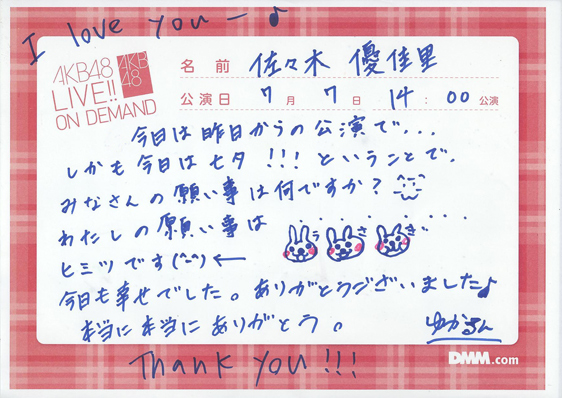 I love you ー ♪
AKB48
LIVE!!
ON DEMAND
AKB
48
名前 佐々木 優佳里
公演日 7月 7日 14:00公演
今日は昨日からの公演で...
しかも今日は七夕!!!ということで、
みなさんの願い事は何ですか?
わたしの願い事は........
う さ ぎ
ヒミツです(^-^)←
今日も幸せでした。ありがとうございました♪
本当に本当にありがとう。
ゆかるん
DMM.com
Thank you!!!